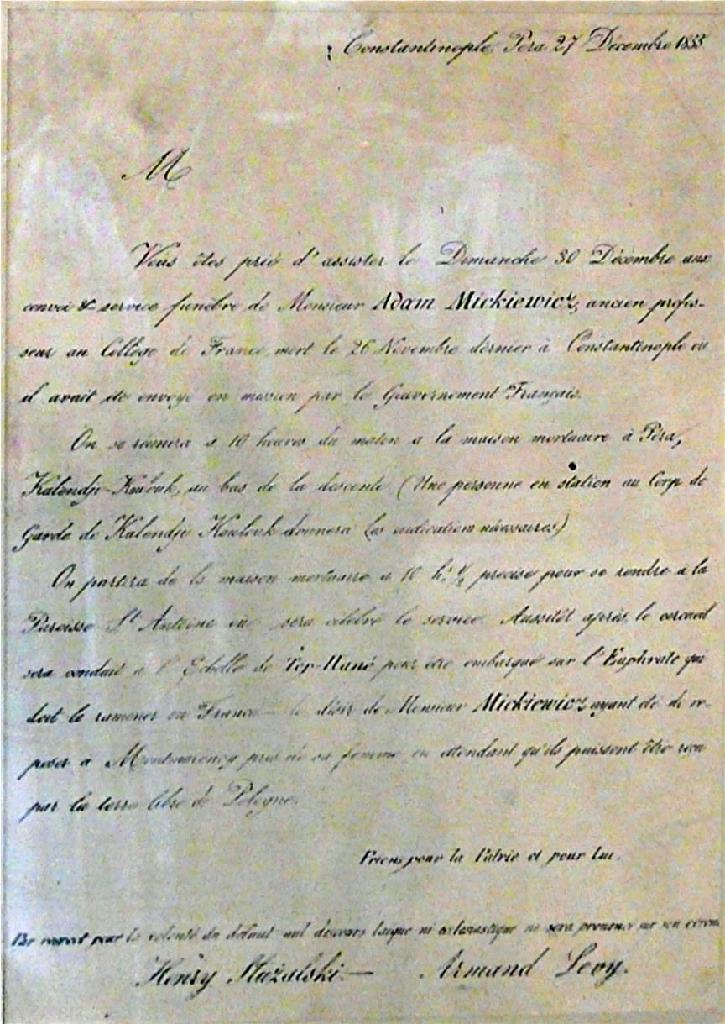 Constantinople, Péra 27 Décembre 1855
M
Vous êtes prié d'assister le Dimanche 30 Décembre aux
convoi & service funèbre de Monsieur Adam Mickiewicz, ancien profes-
seur au Collège de France mort le 26 Novembre dernier à Constantinople où
il avait été envoyé en mission par le Gouvernement Français.
On se réunira à 10 heures du matin à la maison mortuaire à Péra,
Kalendje Koulouk, au bas de la descente (Une personne en station au Corps de
Garde de Kalendje Koulouk donnera les indications nécessaires)
On partira de la maison mortuaire à 10 h. ½ précises pour se rendre à la
Paroisse St Antoine où sera célébré le service. Aussitôt après, le cercueil
sera conduit à l'Echelle de Top-Hané pour être embarqué sur l'Euphrate qui
doit le ramener en France — le désir de Monsieur Mickiewicz ayant été de re-
poser à Montmorency près de sa femme en attendant qu'ils puissent être reçus
par la terre libre de Pologne.
Prions pour la Patrie et pour Lui.
Par respect pour la volonté du défunt nul discours laïque ni ecclésiastique ne sera prononcé sur son cercueil
Henry Służalski — Armand Levy.